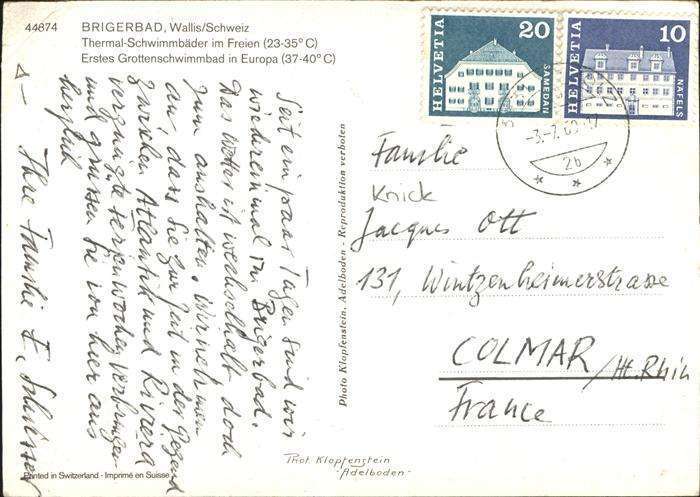 44874 BRIGERBAD, Wallis/Schweiz
Thermal-Schwimmbäder im Freien (23-35° C)
Erstes Grottenschwimmbad in Europa (37-40° C)
HELVETIA 20 SAMEDAN
HELVETIA 10 NÄFELS
-3.-7.69.-17
2b
Seit ein paar Tagen sind wir
wieder einmal in Brigerbad.
Das Wetter ist wechselhaft doch
zum aushalten. Wir nehmen
an, dass Sie zur Zeit in der Gegend
zwischen Atlantik und Riviera
vergnügte Ferienwochen verbringen
und grüssen Sie von hier aus
herzlich
Ihre Familie E. Schlösser
Photo Klopfenstein, Adelboden - Reproduktion verboten
Familie
Knick
Jacques Ott
131, Wintzenheimerstrasse
COLMAR /Ht. Rhin
France
Phot. Klopfenstein
-Adelboden-
Printed in Switzerland - Imprimé en Suisse